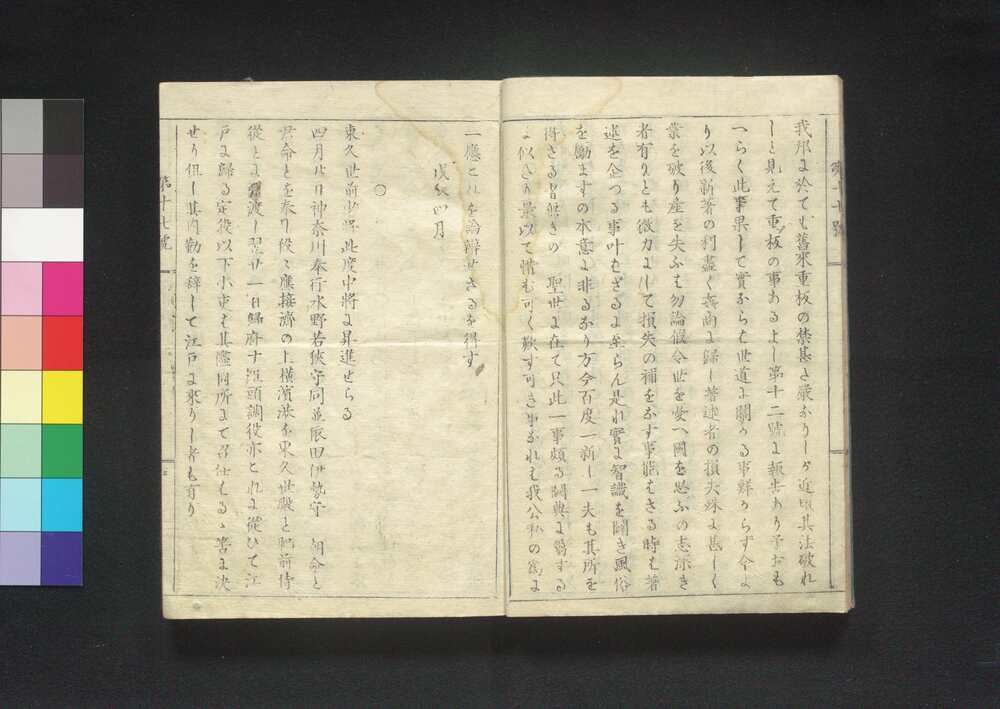 我邦に於ても舊來重板の禁甚だ嚴なりしが近頃其法破れ
しと見えて重板の事あるよし第十二號に報告あり予おも
へらく此事果して實ならば世道に關かる事鮮からず今よ
り以後新著の利盡く奸商に歸し著述者の損失殊に甚しく
業を破り産を失ふは勿論假令世を愛へ國を思ふの志深き
者有りとも微力にして損失の補をなす事能はざる時は著
述を企つる事叶はざるに至らん是れ實に智識を開き風俗
を勵ますの本意に非るなり方今百度一新し一夫も其所を
得ざる者無きの 聖世に在て只此一事頗る闕典に屬する
に似たり最以て惜む可く歎ず可き事なれば我公私の爲に
一應これを論辯せざるを得ず
戊辰四月
○
東久世前少將此度中將に昇進せらる
四月廿日神奈川奉行水野若狹守同並依田伊勢守 朝命と
君命とを奉り役々應接濟の上横濱港を東久世殿と肥前侍
從とに引渡し翌廿一日歸府す組頭調役亦これに從ひて江
戸に歸る定役以下小吏は其儘同所にて召仕はるゝ筈に決
せり但し其内勤を辭して江戸に來りし者も有り
第十七號